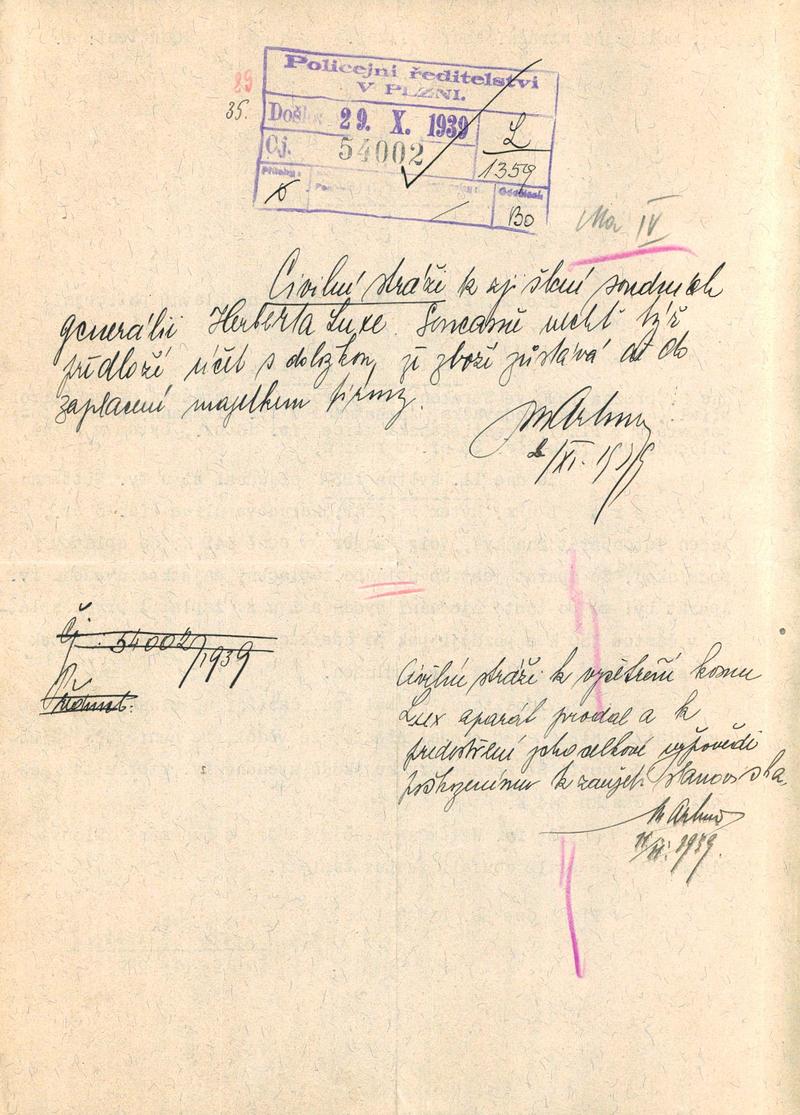 89
35.
Policejní ředitelství
V PLZNI.
Došlo: 29. X. 1939
Čj. 54002
L
1359
Přílohy:
Oddělení
BO
IV
Civilní stráži k zjištění soudních
generálií Herberta Luxe. Současně nechť týž
předloží účet s doložkou, že zboží zůstává až do
zaplacení majetkem firmy.
/XI. 1939
Čj: 54002/1939
Předmět:
Civilní stráži k vyšetření komu
Lux aparát prodal a k
předestření jeho celkové výpovědi
poškozenému k zaujetí stanoviska
1939.